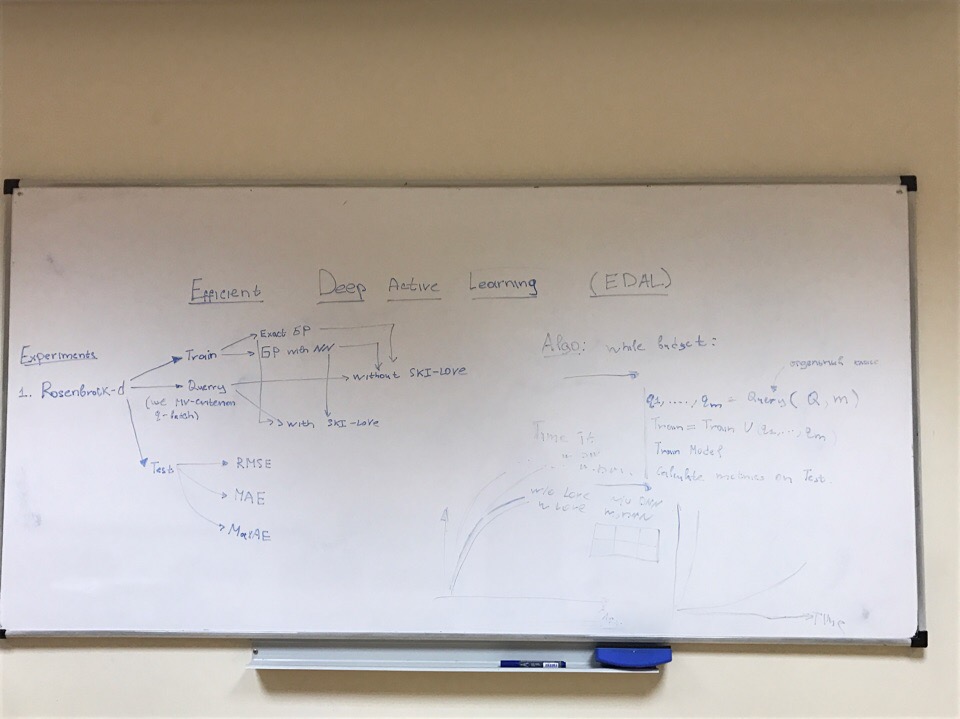 Efficient Deep Active Learning (EDAL)
Experiments
1. Rosenbrock-d
Train
Exact GP
GP with NN
Querry
(we MV-criterion
q-batch)
without SKI-LOVE
with SKI-LOVE
Test
RMSE
MAE
MaxAE
Algo: while budget:
q1, ...., qm = Query(Q, m)
Train = Train U (q1, .., qm)
Train Model
Calculate metrics on Test.
w/o Love
w Love
w/o DNN
w DNN
Time